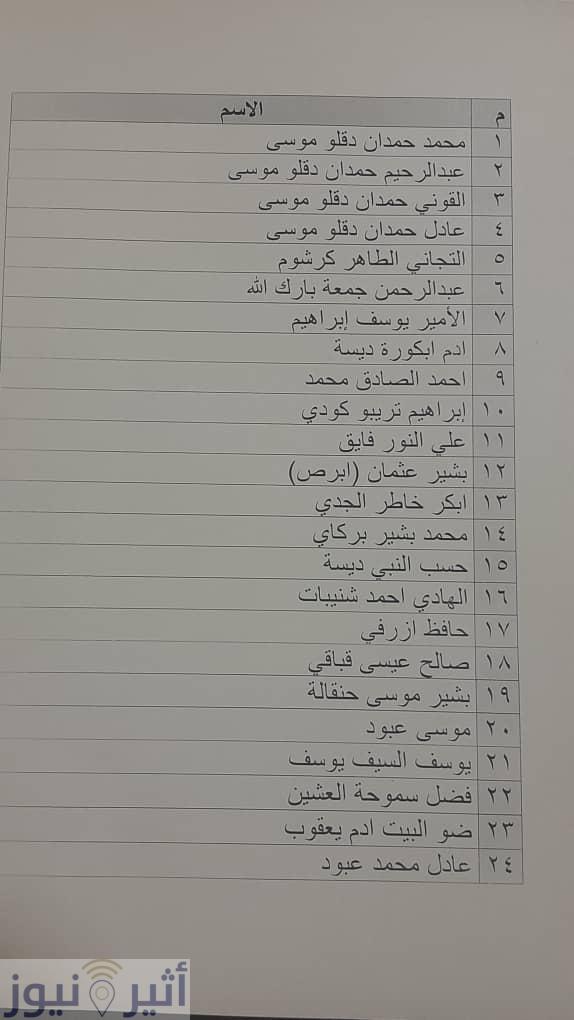 م الاسم
١ محمد حمدان دقلو موسى
٢ عبدالرحيم حمدان دقلو موسى
٣ القوني حمدان دقلو موسى
٤ عادل حمدان دقلو موسى
٥ التجاني الطاهر كرشوم
٦ عبدالرحمن جمعة بارك الله
٧ الأمير يوسف إبراهيم
٨ ادم ابكورة ديسة
٩ احمد الصادق محمد
١٠ إبراهيم تريبو كودي
١١ علي النور فايق
١٢ بشير عثمان (ابرص)
١٣ ابكر خاطر الجدي
١٤ محمد بشير بركاي
١٥ حسب النبي ديسة
١٦ الهادي احمد شنيبات
١٧ حافظ ازرفي
١٨ صالح عيسى قباقي
١٩ بشير موسى حنقالة
٢٠ موسى عبود
٢١ يوسف السيف يوسف
٢٢ فضل سموحة العشين
٢٣ ضو البيت ادم يعقوب
٢٤ عادل محمد عبود
أثير نيوز